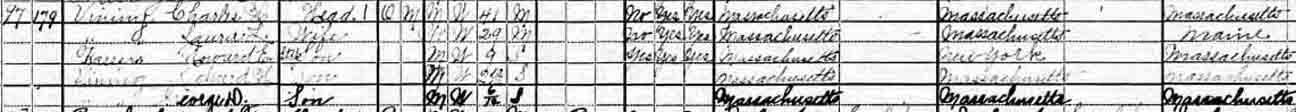 97 179 Vining Charles Head 1 O M M W 41 M No Yes Yes Massachusetts Massachusetts Massachusetts
Laura L. Wife W 29 M No Yes Yes Massachusetts Massachusetts Maine
Howard E. Step Son M W 9 S Yes Yes Yes Massachusetts New York Massachusetts
Vining Son M W S Massachusetts Massachusetts Massachusetts
George D. Son M W S Massachusetts Massachusetts Massachusetts